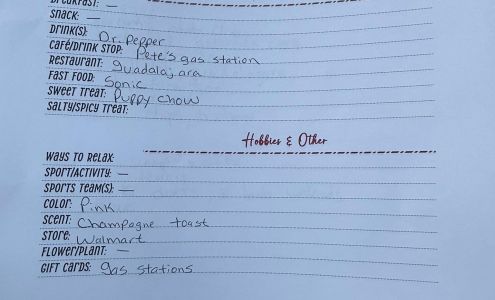 BREAKFAST: —
SNACK: —
DRINK(S): Dr. Pepper
CAFÉ/DRINK STOP: Pete's gas station
RESTAURANT: guadalajara
FAST FOOD: Sonic
SWEET TREAT: Puppy Chow
SALTY/SPICY TREAT:
Hobbies & Other
WAYS TO RELAX:
SPORT/ACTIVITY: —
SPORTS TEAM(S): —
COLOR: Pink
SCENT: Champagne toast
STORE: Walmart
FLOWER/PLANT: —
GIFT CARDS: gas stations